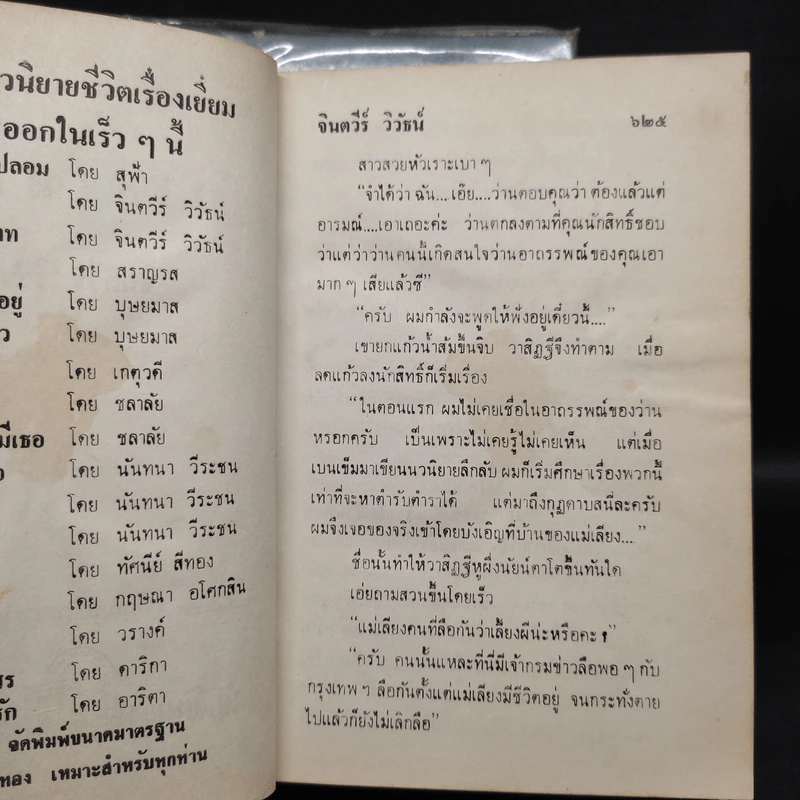 วนิยายชีวิตเรื่องเยี่ยม
ออกในเร็ว ๆ นี้
ปลอม โดย สุฟ้า
โดย จินตวีร์ วิวัธน์
าท โดย จินตวีร์ วิวัธน์
โดย สราญรส
อยู่ โดย บุษยมาส
ว โดย บุษยมาส
โดย เกตุวดี
โดย ชลาลัย
มีเธอ โดย ชลาลัย
โดย นันทนา วีระชน
โดย นันทนา วีระชน
โดย นันทนา วีระชน
โดย ทัศนีย์ สีทอง
โดย กฤษณา อโศกสิน
โดย วรางค์
ร โดย ดาริกา
รัก โดย อาริตา
จัดพิมพ์ขนาดมาตรฐาน
ทอง เหมาะสำหรับทุกท่าน
จินตวีร์ วิวัธน์ ๖๒๕
สาวสวยหัวเราะเบา ๆ
“จำได้ว่า ฉัน... เอ๊ย....ว่านตอบคุณว่า ต้องแล้วแต่
อารมณ์....เอาเถอะค่ะ ว่านตกลงตามที่คุณนักสิทธิ์ชอบ
ว่าแต่ว่าว่านคนนี้เกิดสนใจว่านอาถรรพณ์ของคุณเอา
มาก ๆ เสียแล้วซี”
“ครับ ผมกำลังจะพูดให้ฟังอยู่เดี๋ยวนี้....”
เขายกแก้วน้ำส้มขึ้นจิบ วาสิฏฐีจึงทำตาม เมื่อ
ลดแก้วลงนักสิทธิ์ก็เริ่มเรื่อง
“ในตอนแรก ผมไม่เคยเชื่อในอาถรรพณ์ของว่าน
หรอกครับ เป็นเพราะไม่เคยรู้ไม่เคยเห็น แต่เมื่อ
เบนเข็มมาเขียนนวนิยายลึกลับ ผมก็เริ่มศึกษาเรื่องพวกนี้
เท่าที่จะหาตำรับตำราได้ แต่มาถึงกุฎดาบสนี่ละครับ
ผมจึงเจอของจริงเข้าโดยบังเอิญที่บ้านของแม่เลียง...”
ชื่อนั้นทำให้วาสิฏฐีหูผึ่งนัยน์ตาโตขึ้นทันใด
เอ่ยถามสวนขึ้นโดยเร็ว
“แม่เลียงคนที่ลือกันว่าเลี้ยงผีน่ะหรือคะ ?”
“ครับ คนนั้นแหละที่นี่มีเจ้ากรมข่าวลือพอ ๆ กับ
กรุงเทพ ฯ ลือกันตั้งแต่แม่เลียงมีชีวิตอยู่ จนกระทั่งตาย
ไปแล้วก็ยังไม่เลิกลือ”